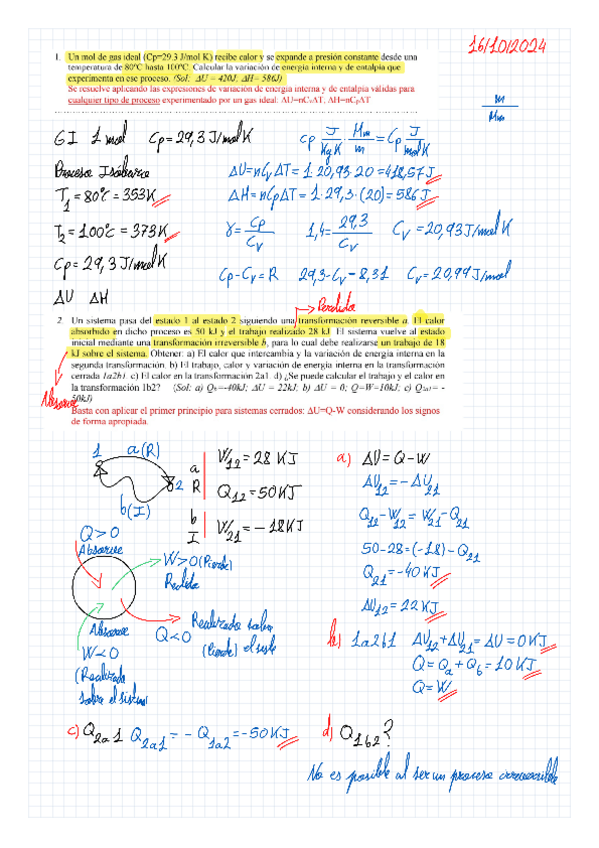 16/10/2024
1. Un mol de gas ideal (Cp=29.3 J/mol K) recibe calor y se expande a presión constante desde una
temperatura de 80ºC hasta 100ºC. Calcular la variación de energía interna y de entalpía que
experimenta en ese proceso. (Sol: ΔU = 420J; ΔH= 586J)
Se resuelve aplicando las expresiones de variación de energía interna y de entalpía válidas para
cualquier tipo de proceso experimentado por un gas ideal: ΔU=nCvΔT, ΔH=nCpΔT
m / Mm
GI 1 mol Cp = 29,3 J/mol K
cp J/Kg K · Mm/m = Cp J/mol K
Proceso Isóbarico
ΔU = nCv ΔT = 1·20,93·20 = 418,57 J
T1 = 80ºC = 353K
ΔH = nCp ΔT = 1·29,3·(20) = 586 J
T2 = 100ºC = 373K
γ = Cp/Cv 1,4 = 29,3/Cv Cv = 20,93 J/mol K
Cp = 29,3 J/mol K
Cp - Cv = R 29,3 - Cv - 8,31 Cv = 20,99 J/mol K
ΔU ΔH
Perdida
2. Un sistema pasa del estado 1 al estado 2 siguiendo una transformación reversible a. El calor
absorbido en dicho proceso es 50 kJ y el trabajo realizado 28 kJ. El sistema vuelve al estado
inicial mediante una transformación irreversible b, para lo cual debe realizarse un trabajo de 18
kJ sobre el sistema. Obtener: a) El calor que intercambia y la variación de energía interna en la
segunda transformación. b) El trabajo, calor y variación de energía interna en la transformación
cerrada 1a2b1. c) El calor en la transformación 2a1. d) ¿Se puede calcular el trabajo y el calor en
la transformación 1b2? (Sol: a) Qb=-40kJ; ΔU = 22kJ; b) ΔU = 0; Q=W=10kJ; c) Q2a1 = -
50kJ)
Absorve
Basta con aplicar el primer principio para sistemas cerrados: ΔU=Q-W considerando los signos
de forma apropiada.
1 a(R)
2
b(I)
a R
W12 = 28 KJ
Q12 = 50 KJ
b I
W21 = -18 KJ
a) ΔU = Q - W
ΔU12 = - ΔU21
Q12 - W12 = W21 - Q21
50 - 28 = (-18) - Q21
Q21 = -40 KJ
ΔU12 = 22 KJ
Q>0
Absorve
W>0 (Pierde)
Perdida
Absorve
W<0
(Realizado
sobre el sistema
Q<0
Realizado sobre
(Pierde) el siste
b) 1a2b1 ΔU12 + ΔU21 = ΔU = 0 KJ
Q = Qa + Qb = 10 KJ
Q = W
c) Q2a1 Q2a1 = - Q1a2 = -50 KJ
d) Q1b2?
No es posible al ser un proceso irreversible